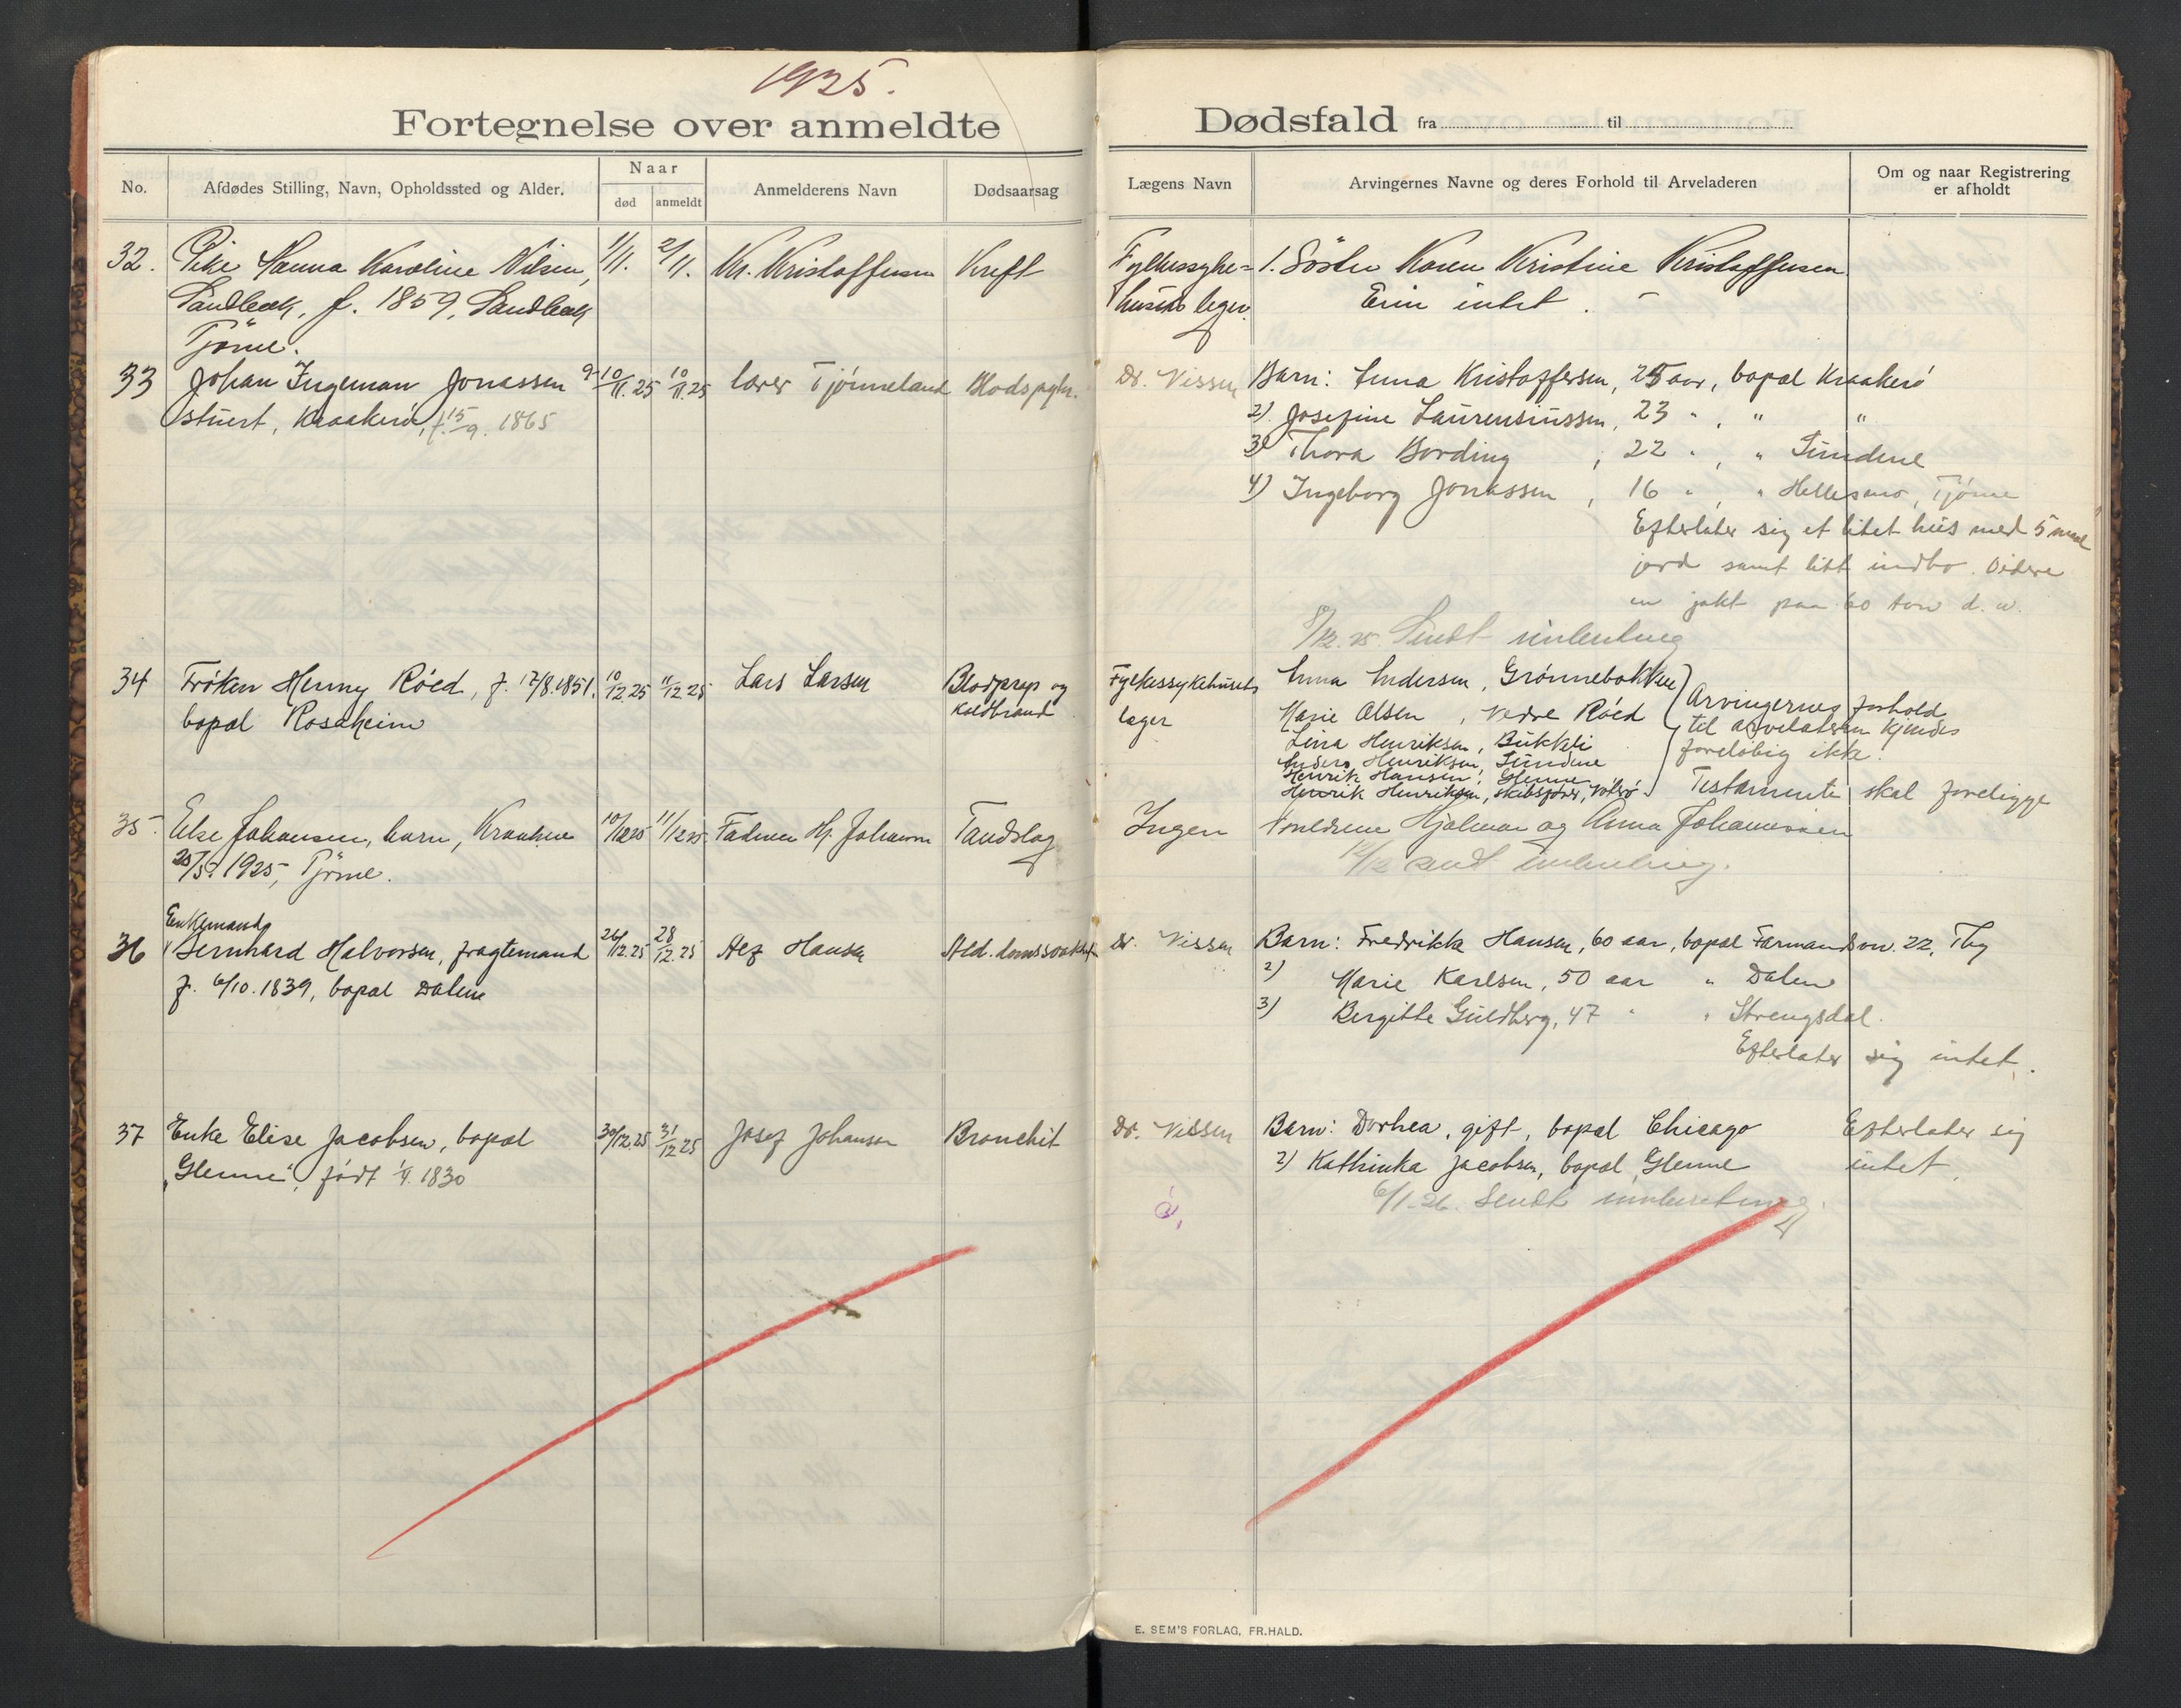 1925.
Fortegnelse over anmeldte
No.
Afdødes Stilling, Navn, Opholdssted og Alder.
Naar
død
anmeldt
Anmelderens Navn
Dødsaarsag
32. Pike Hanna Karoline Nilsen, 1/11. 2/11. Kr. Kristoffersen Kreft
Sandbæk, f. 1859, Sandbæk
Tjöme.
33 Johan Ingeman Jonassen 9-10/11.25 10/11.25 lærer Tjønneland Blodspytn.
stuert, Kraakerø, f. 15/9. 1865
34 Frøken Henny Røed, f. 17/8.1851. 10/12.25 11/12 25 Lars Larsen Blodprop og
bopal Rosaheim koldbrand
35. Else Johansen, barn, 10/12 25 11/12 25. Faderen Hj. Johansen Tandslag
20/5. 1925, Tjöme.
Enkemand
36 Bernhard Halvorsen, fragtemand 26/12.25 28/12.25 Alf Hansen Ald.domssvakhet
f. 6/10.1839, bopal Dalene
37 Enke Elise Jacobsen, bopal 30/12.25 31/12 25 Josef Johansen Bronchit
"Glenne", født 1830
Dødsfald fra til
Lægens Navn
Arvingernes Navne og deres Forhold til Arveladeren
Om og naar Registrering
er afholdt
Fylkessyke= 1. Söster Karen Kristine Kristoffersen
husets leger. Eier intet.
Dr. Nissen Barn: Anna Kristoffersen, 25 aar, bopal Kraakerø
2) Josefine Laurensiussen, 23 " , " "
3) Thora Bording , 22 " , " Sundene
4) Ingeborg Jonassen , 16 " , " Hellesmo, Tjøme
Efterlater sig et litet hus med 5 maal
jord samt litt indbo. Videre
en jakt paa 60 ton d.w.
8/12.25. Sendt innberetning
Fylkessykehusets Anna Andersen, Grønnebakken
læger Marie Olsen , Nedre Røed
Arvingernes forhold
til arvelateren kjendes
foreløbig ikke.
Lina Henriksen, Bukkli
Anders Henriksen, Sundene
Henrik Hansen, Glenne
Henrik Henriksen, skibsfører,
Testamente skal foreligge
Ingen Foreldrene Hjalmar og Anna Johannessen
12/12 sendt innberetning.
Dr. Nissen Barn: Fredrikke Hansen, 60 aar, bopal Farmandsvn. 22, Tbg
2) Marie Karlsen, 50 aar " Dalene
3) Birgitte Guldberg, 47 " " Strengsdal.
Efterlater sig intet.
Dr. Nissen Barn: Dorthea, gift, bopal Chicago Efterlater sig
2) Kathinka Jacobsen, bopal Glenne intet.
6/1-26. Sendt innberetning.
E. SEM'S FORLAG, FR.HALD.